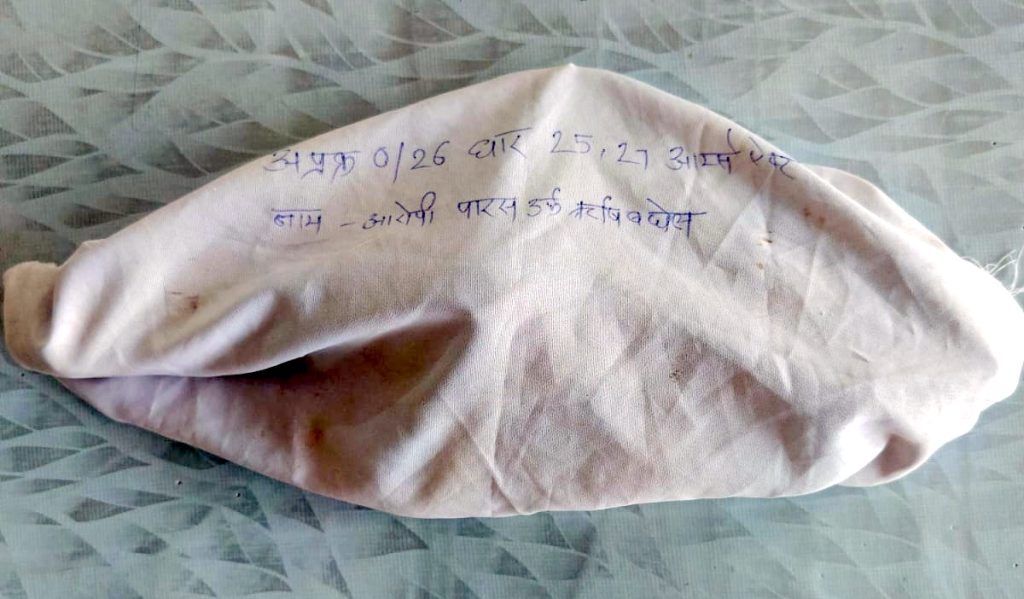 अपक्र 0/26 धार 25,27 आर्म्स एक्ट
नाम - आरोपी पारस उर्फ ऋषि बघेल